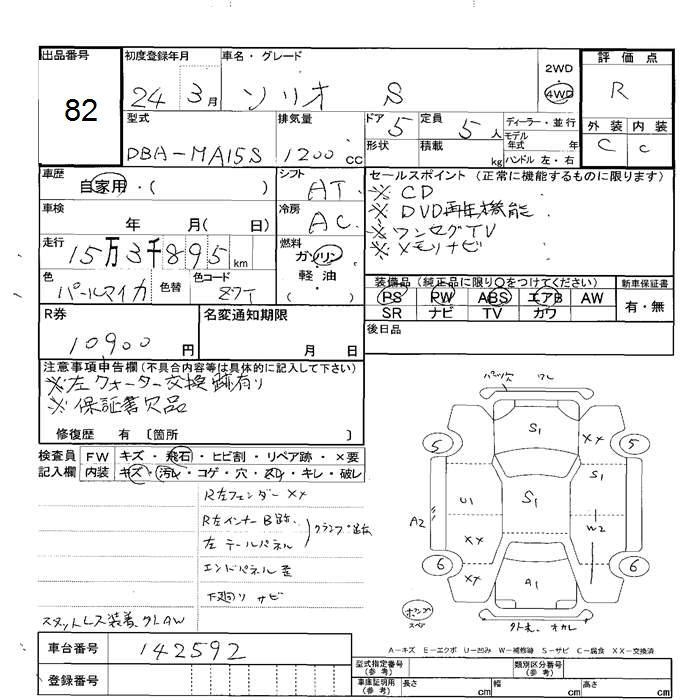 出品番号
82
初度登録年月
24 3月
車名・グレード
ソリオ S
2WD
4WD
評価点
R
型式
DBA-MA15S
排気量
1200cc
ドア 5
定員 5人
形状
積載 kg
ディーラー・並行
モデル
年式 年
ハンドル 左・右
外装 内装
C C
車歴
自家用・( )
シフト
AT
車検
年 月( 日)
冷房
AC
走行
15万3千895km
燃料
ガソリン
軽油
( )
色
パールマイカ
色替
色コード
Z7T
セールスポイント(正常に機能するものに限ります)
※CD
※DVD再生機能
※ワンセグTV
※メモリナビ
装備品(純正品に限り○をつけてください)
PS PW ABS エアB AW
SR ナビ TV カワ
新車保証書
有・無
後日品
R券
10900円
名変通知期限
月 日
注意事項申告欄(不具合内容等は具体的に記入して下さい)
※左クォーター交換跡有り
※保証書欠品
修復歴 有 〔箇所 〕
検査員
記入欄
FW キズ・飛石・ヒビ割・リペア跡・×要
内装 キズ・汚レ・コゲ・穴・スレ・キレ・破レ
R左フェンダーXX
R左インナーB跡.
左テールパネル
クランプ跡有
エンドパネル歪
下廻りサビ
スタットレス装着、クトAW
車台番号
142592
登録番号
ワレ
S1
5
XX
5
S1
U1
S1
A2
XX
W2
6
XX
A1
6
スペア
A-キズ E-エクボ U-凹み W-補修跡 S-サビ C-腐食 XX-交換済
型式指定番号
(参考)
類別区分番号
(参考)
車庫証明用
(参考)
長さ cm
幅 cm
高さ cm